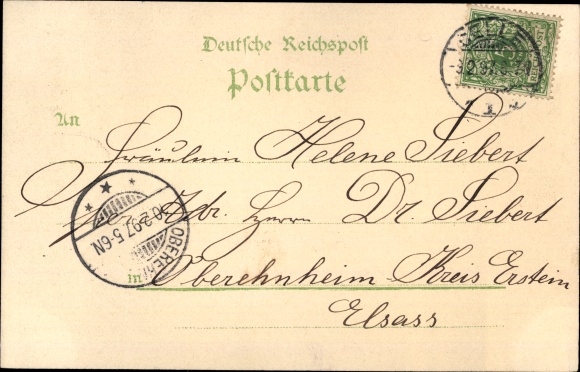 Deutsche Reichspost
Postkarte
An
Fräulein Helene Siebert
Adr. Herrn Dr. Siebert
in Oberehnheim Kreis Erstein
Elsass
2.97.5-6N.
OBEREH
REICHSPOST